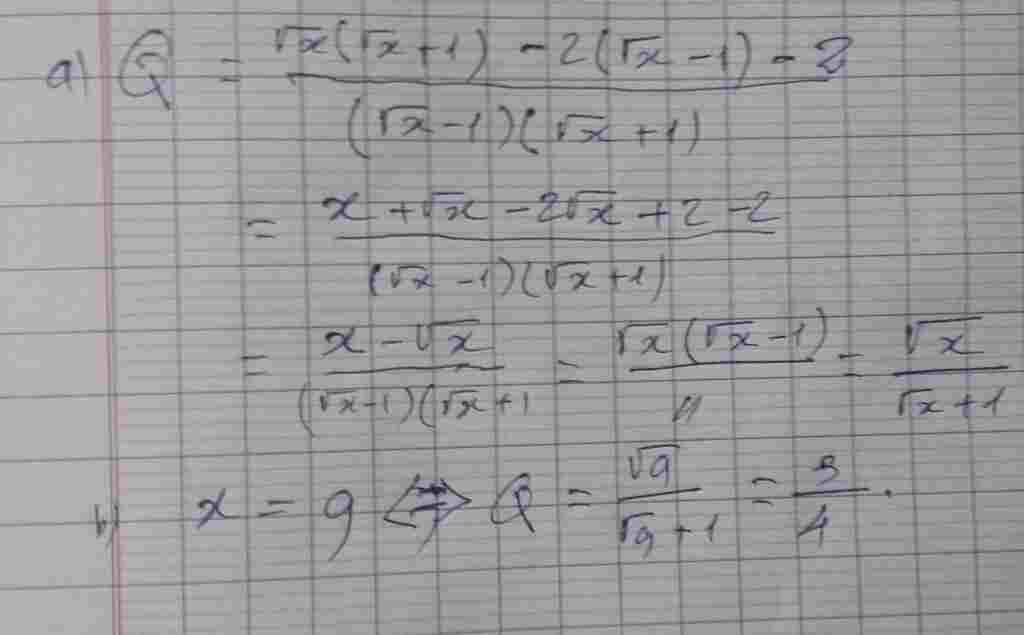 a) Q = (√x(√x+1) - 2(√x-1) - 2) / ((√x-1)(√x+1))
= (x + √x - 2√x + 2 - 2) / ((√x-1)(√x+1))
= (x - √x) / ((√x-1)(√x+1) = (√x(√x-1)) / '' = √x / (√x+1)
b) x = 9 <=> Q = √9 / (√9+1) = 3/4.